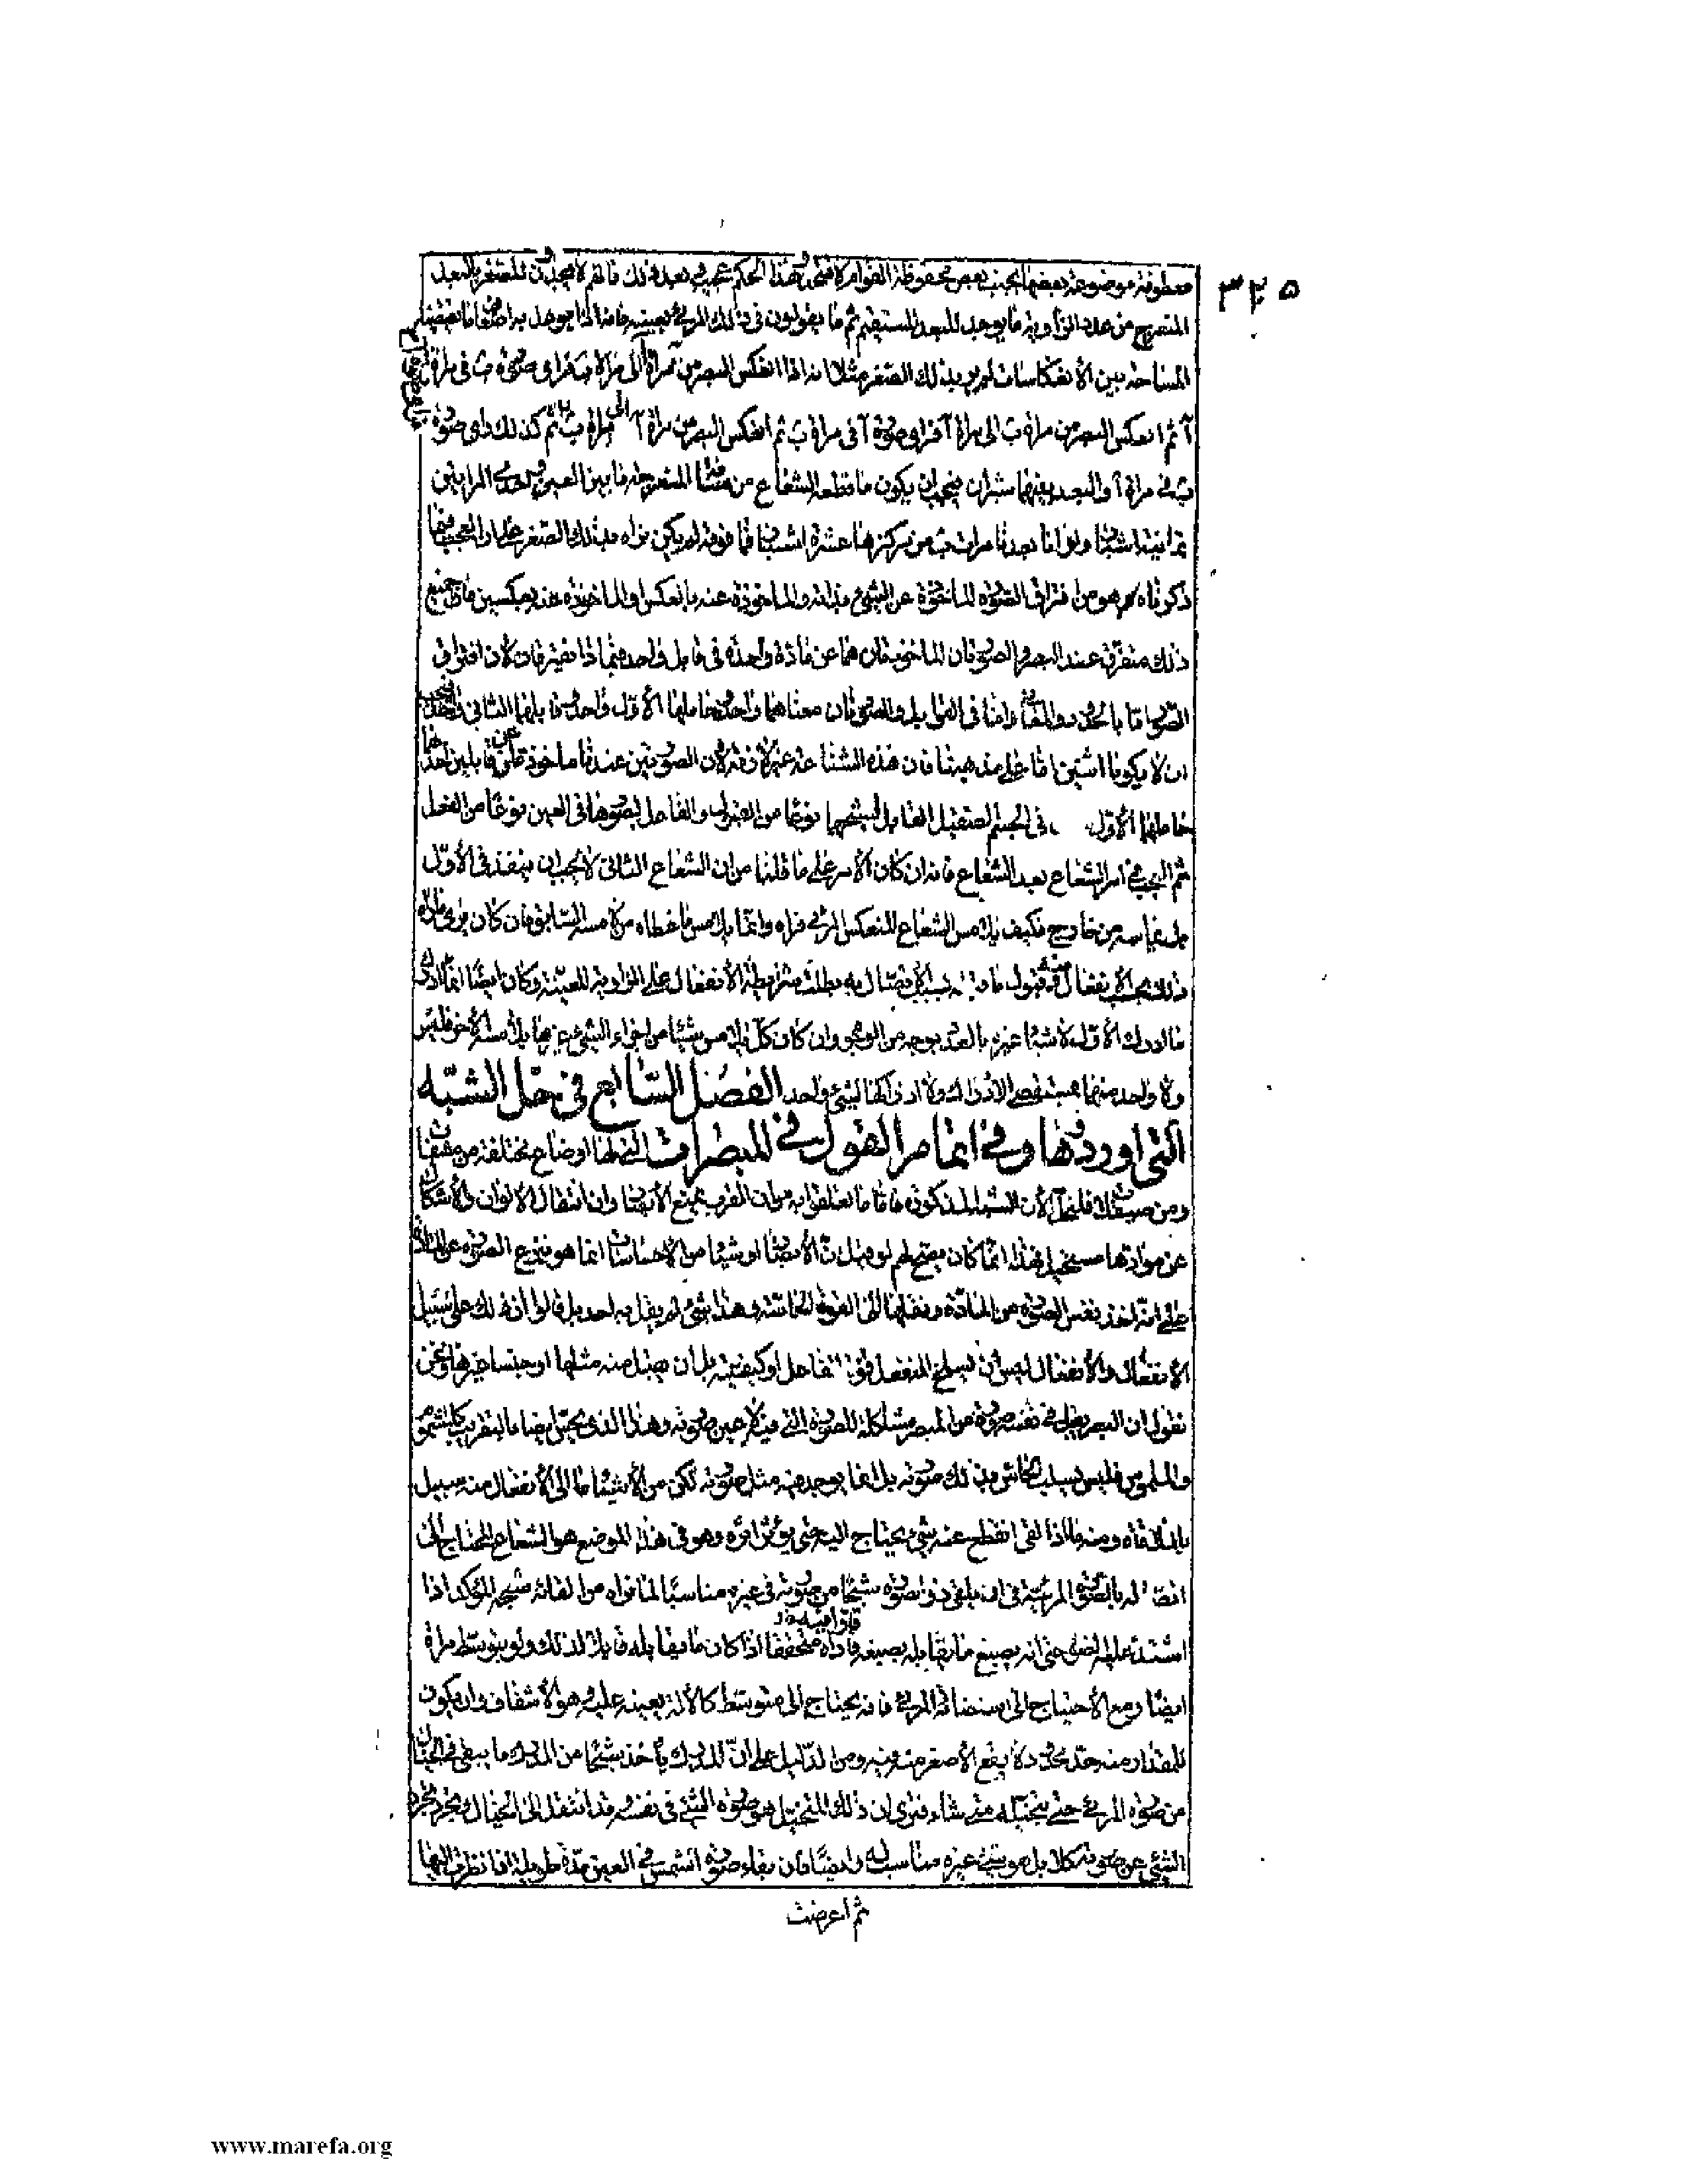 ٣٣٥
معطوفة موضوعة بعضها بجنب بعض محفوظة القوام لا فتحدوا هذا الحكم عجيب بعد ذلك فانهم لا يجدون للصغر بالبعد
المتعرج من هذه الزاوية ما يوجد للبعد المستقيم ثم ما يقولون فى ذلك المرئى بعينه فانه اذا بوعد به
المساحة بين الانعكاسات لم ير بذلك الصغر مثلا انه اذا انعكس البصر من مرآة آ الى مرآة ب فرأى صورة ب فى مرآة
آ ثم انعكس البصر من مرآة ب الى مرآة آ فرأى صورة آ فى مرآة ب ثم انعكس البصر من مرآة آ الى مرآة ب ثم كذلك رأى صورة
ب فى مرآة آ والبعد بينهما شبران فيجب ان يكون ما قطعه الشعاع من المنعرجة ما بين العين واحدى المرايتين
ثمانية اشبار ولو انا بعدنا مرآة ب من مركزها عشرة اشبار فما فوقه لم يكن نراه بذلك الصغر على ان العجب فيما
ذكرناه هو من افتراق الصورة المأخوذة عن الشىء بذاته والمأخوذة عنه بالعكس او المأخوذة عنه بعكسين فان جميع
ذلك متفرق عند البصر والصورتان المأخوذتان هما عن مادة واحدة فى قابل واحد فبماذا يفترقان لان افتراق
الصور اما بالحدود والمعانى واما فى القوابل والصورتان معناهما واحد وحاملهما الاول واحد وقابلهما الثانى واحد فيجب
ان لا يكونا اثنين اما على مذهبنا فان هذه الشناعة غير لازمة لان الصورتين عندنا مأخوذة عن قابلين احدهما
حاملهما الاول فى الجسم الصقيل القابل لشبحهما نوعا من القبول والفاعل لصورها فى العين نوعا من الفعل
ثم العجب فى امر الشعاع بعد الشعاع فانه ان كان الامر على ما قلنا من ان الشعاع الثانى لا يجب ان ينفذ فى الاول
بل يماسه من خارج فكيف يلامس الشعاع المنعكس المرئى فراه وانما يلامس ما غطاه من لامسه السابق فان كان يرى
ذلك بحسب الانفعال منه بسبب الاتصال به بطلت شريطة الانفعال على الزاوية المعينة وكان ايضا انما ادرك
ما ادرك الاول لا شيئا غيره بالعدد بوجه من الوجوه وان كان كل يلامس شيئا من اجزاء الشىء غير ما يلامسه الآخر فليس
ولا واحد منهما بمستقصى الادراك ولا ادراكهما لشىء واحد الفصل السابع فى حل الشبه
التى اوردوها وفى اتمام القول فى المبصرات التى لها اوضاع مختلفة من مشفات
ومن صقيلات فلنحل الآن الشبه المذكورة فاما ما تعلقوا به من ان القرب يمنع الابصار وان انتقال الالوان والاشكال
عن موادها مستحيل فهذا انما كان يصح لهم لو قيل ان الابصار او شيئا من الاحساسات انما هو بنزع الصورة عن المادة
على انه اخذ نفس الصورة من المادة ونقلها الى القوة الحاسة وهذا شىء لم يقل به احد بل قالوا ان ذلك على سبيل
الانفعال والانفعال ليس ان يسلخ المنفعل قوة الفاعل او كيفيته بل ان يقبل منه مثلها او جنسا غيرها ونحن
نقول ان البصر يقبل فى نفسه صورة من المبصر مشاكلة للصورة التى فيه لا عين صورته وهذا الذى يحس ايضا بالتقريب كالمشموم
والملموس فليس يسلب الحاس بذلك صورته بل انما يوجد فيه مثل صورته لكن من الاشياء ما الى الانفعال منه سبيل
بالملاقاة ومنه ما اذا لقى انقطع عنه شىء يحتاج اليه حتى يؤثر اثره وهو فى هذا الموضع هو الشعاع المحتاج الى
اتصاله بالصورة المرئية فى ان يلقى ذو الصورة شبحا من صورته فى غيره مناسبا لما نراه من القائه شبحه المؤكد اذا
اشتد عليه الضوء حتى انه يصبغ ما يقابله بصبغه فاذاه متحققا اذا كان ما يقابله قابلا لذلك ولو بتوسط مرآة
ايضا ومع الاحتياج الى استضائة المرئى فانه يحتاج الى متوسط كالآلة بعينه عليه وهو الاشفاف وان يكون
للمقدار منه حد محدود لا يقع الاصغر منه فيه ومن الدليل على ان المدرك يأخذ شبحا من المدرك ما يبقى فى الخيال
من صورة المرئى حتى يتخيله متى شاء فترى ان ذلك المتخيل هو صورة الشىء فى نفسه قد انتقل الى الخيال تجرد
الشىء عن صورته كلا بل هو شىء غيره مناسب له وايضا فان بقاء صورة الشمس فى العين مدة طويلة اذا نظرت اليها
ثم اعرضت
www.marefa.org